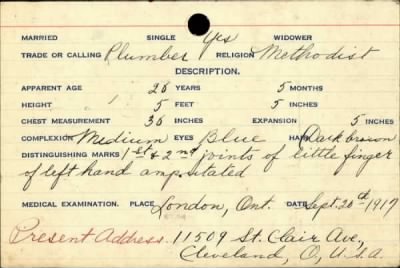 MARRIED SINGLE Yes WIDOWER
TRADE OR CALLING Plumber RELIGION Methodist
DESCRIPTION.
APPARENT AGE 26 YEARS 5 MONTHS
HEIGHT 5 FEET 5 INCHES
CHEST MEASUREMENT 36 INCHES EXPANSION 5 INCHES
COMPLEXION Medium EYES Blue HAIR Dark brown
DISTINGUISHING MARKS 1st & 2nd joints of little finger
of left hand amputated
MEDICAL EXAMINATION. PLACE London, Ont. DATE Sept. 20th 1917
Present Address. 11509 St. Clair Ave.,
Cleveland, O., U.S.A.